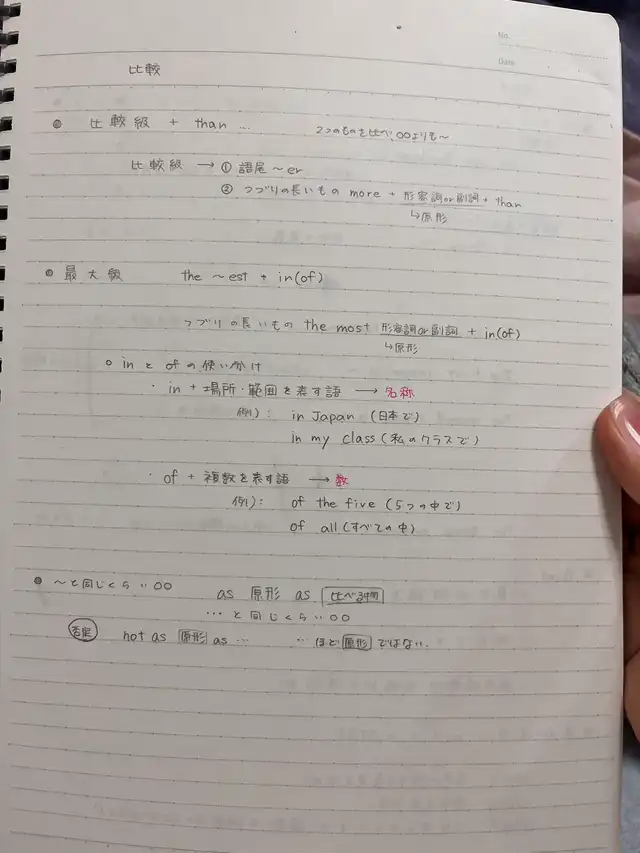 No.
Date
比較
比較級 + than … 2つのものを比べ、○○よりも〜
比較級 → ① 語尾 〜er
② つづりの長いもの more + 形容詞or副詞 + than
↳原形
最大級 the 〜est + in(of)
つづりの長いもの the most 形容詞or副詞 + in(of)
↳原形
○ inとofの使い分け
・in + 場所・範囲を表す語 → 名称
例): in Japan (日本で)
in my class (私のクラスで)
・of + 複数を表す語 → 数
例): of the five (5つの中で)
of all (すべての中)
〜と同じくらい○○ as 原形 as 比べる物
…と同じくらい○○
否定 not as 原形 as … …ほど原形ではない.